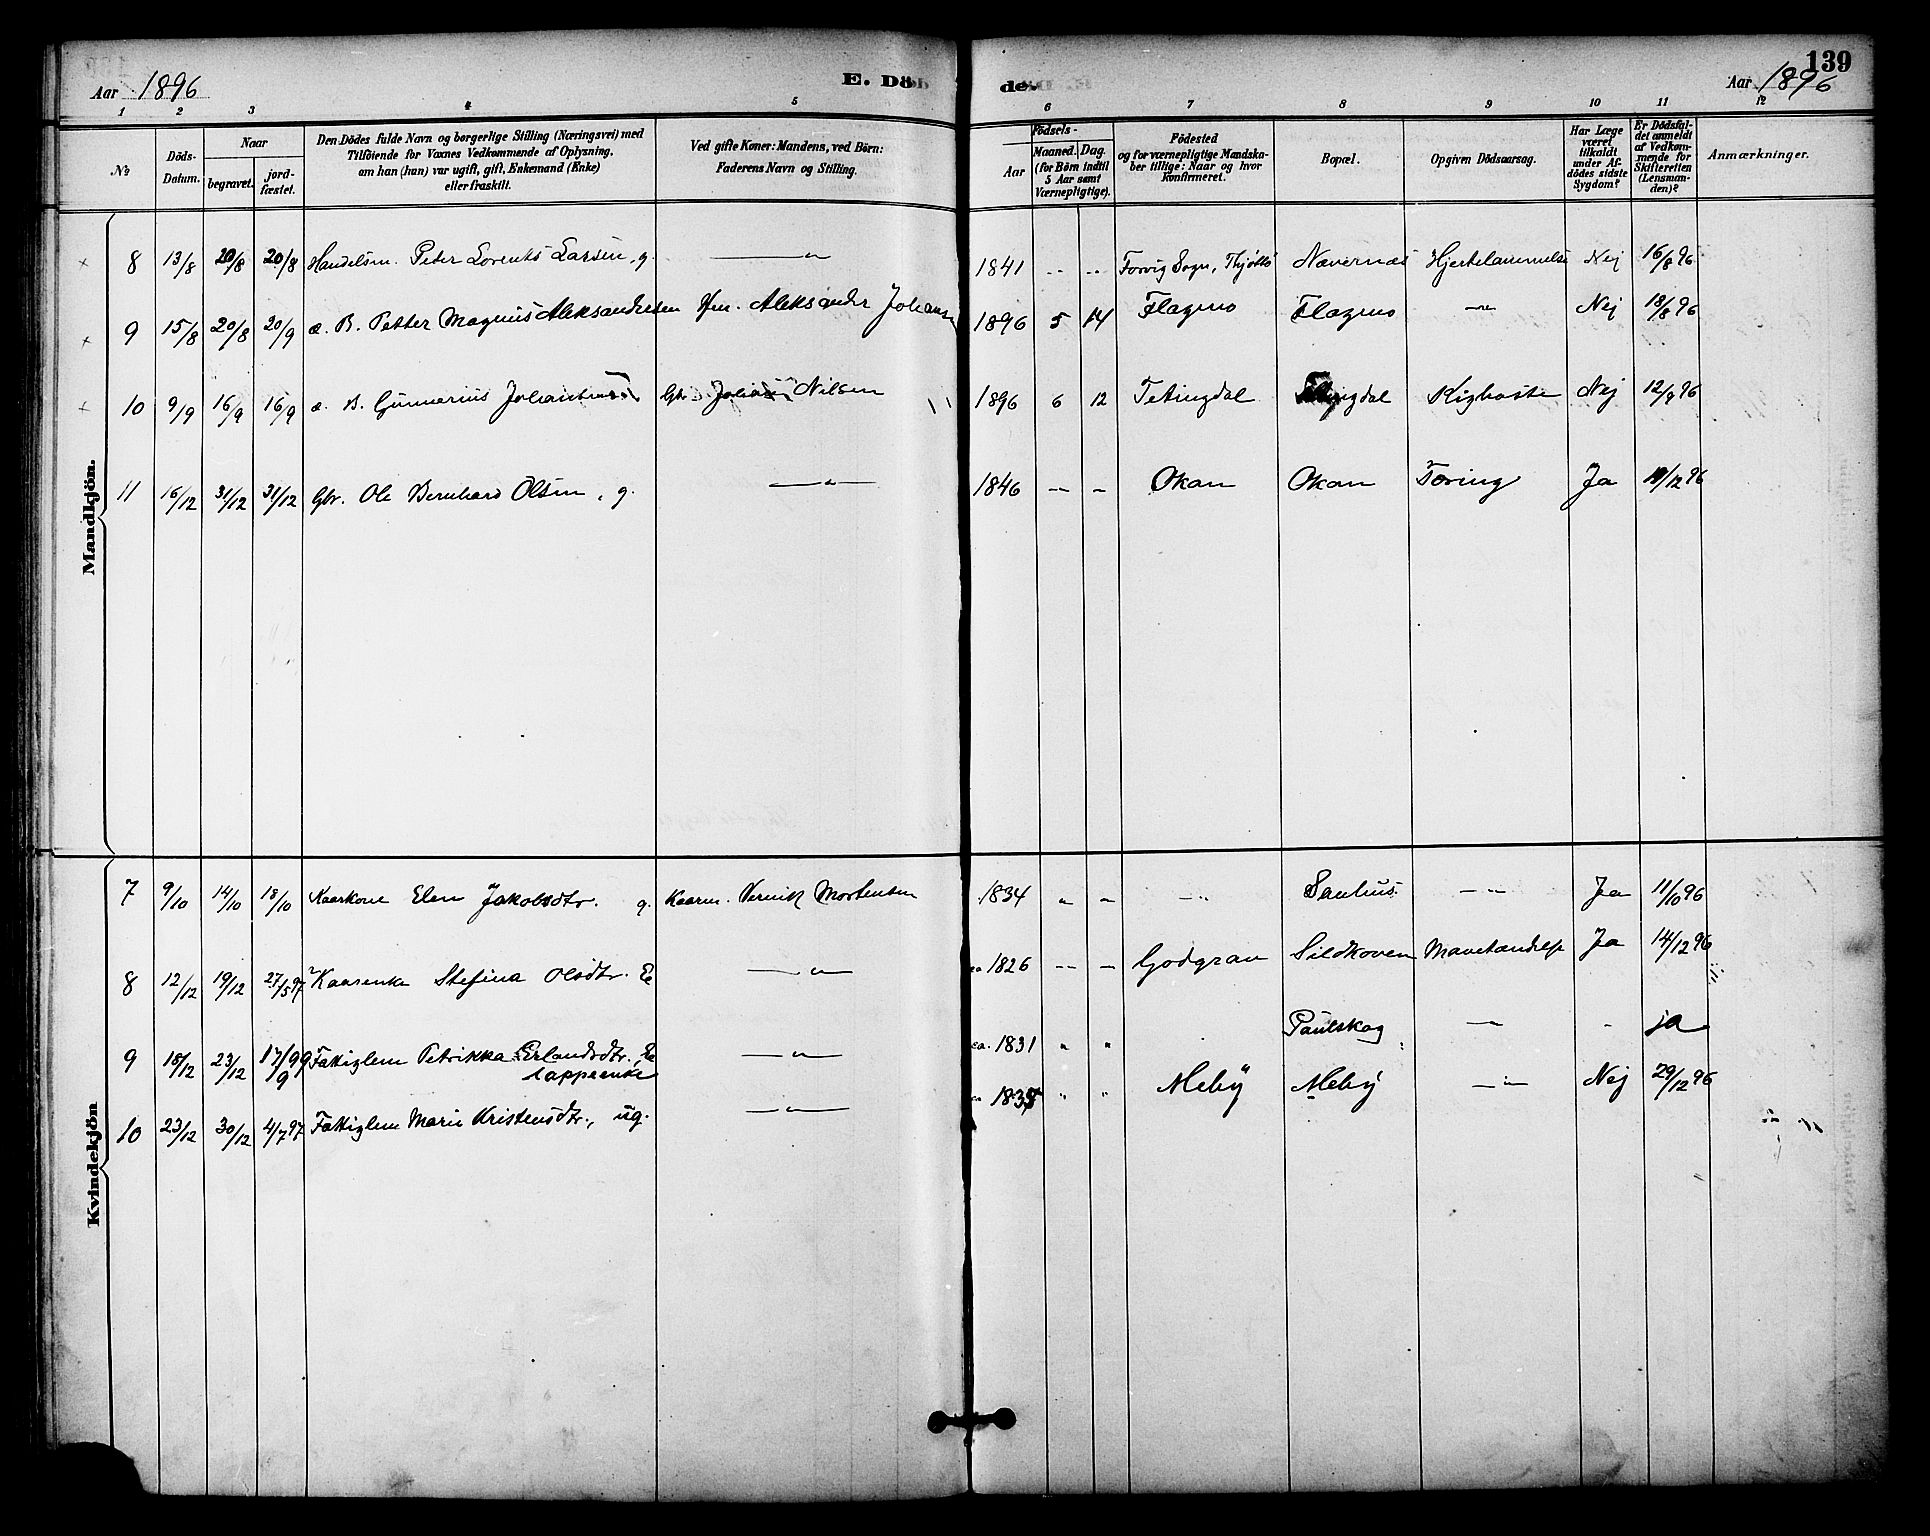 139
Aar 1896 E. Döde. Aar 1896
1 2 3 4 5 6 7 8 9 10 11 12
№
Döds-Datum.
Naar
begravet.
jord-fæstet.
Den Dödes fulde Navn og borgerlige Stilling (Næringsvei) med
Tilföiende for Voxnes Vedkommende af Oplysning,
om han (hun) var ugift, gift, Enkemand (Enke)
eller fraskilt.
Ved gifte Koner: Mandens, ved Börn:
Faderens Navn og Stilling.
Födsels-
Aar
Maaned. Dag.
(for Börn indtil
5 Aar samt
Værnepligtige).
Födested
og for værnepligtige Mandska-
ber tillige: Naar og hvor
konfirmeret.
Bopæl.
Opgiven Dödsaarsag.
Har Læge
været
tilkaldt
under Af-
dödes sidste
Sygdom?
Er Dödsfal-
det anmeldt
af Vedkom-
mende for
Skifteretten
(Lensman-
den)?
Anmærkninger.
Mandkjön.
8 13/8 20/8 20/8 Handelsm. Peter Lorents Larsen, g. —〃— 1841 .. .. Forvig Sogn, Thjøttø Nævernæs Hjertelammelse Nej 16/8 96
9 15/8 20/8 20/9 æ. B. Petter Magnus Aleksandersen Hm. Aleksander Johansen 1896 5 14 Flagmo Flagmo —〃— Nej 18/8 96
10 9/9 16/9 16/9 æ. B. Gunnerius Gbr. Nilsen 1896 6 12 Tetingdal Kighoste Nej 12/9 96
11 16/12 31/12 31/12 Gbr. Ole Bernhard Olsen, g. —〃— 1846 — — Okan Okan Tæring Ja 96
Kvindekjön
7 9/10 14/10 18/10 Kaarkone Elen Jakobsdtr. g. Kaarm. Mortensen 1834 〃 〃 —〃— —〃— Ja 11/10 96
8 12/12 19/12 27/5 97 Kaarenke Stefina Olsdtr. E —〃— ca 1826 — — Godgran Sildhoven Ja 14/12 96
9 18/12 23/12 17/9 99 Fattiglem Petrikka Erlandsdtr., E —〃— ca. 1831 〃 〃 Paulskog —〃— - ja
lappeenke
10 23/12 30/12 4/7 97 Fattiglem Marie Kristensdtr., ug. —〃— ca 〃 〃 Meby Meby —〃— Nej 29/12 96